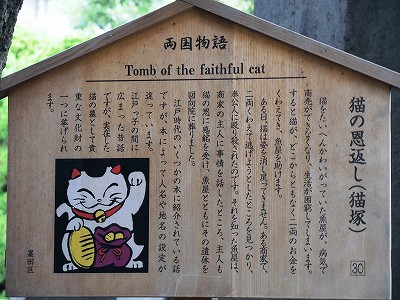 両国物語
Tomb of the faithful cat
猫の恩返し(猫塚)
30
猫をたいへんかわいがっていた魚屋が、病気で
商売ができなくなり、生活が困窮してしまいます。
すると猫が、どこからともなく二両のお金を
くわえてき、魚屋を助けます。
ある日、猫は姿を消し戻ってきません。ある商家で、
二両くわえて逃げようとしたところを見つかり、
奉公人に殴り殺されたのです。それを知った魚屋は、
商家の主人に事情を話したところ、主人も
猫の恩に感銘を受け、魚屋とともにその遺体を
回向院に葬りました。
江戸時代のいくつかの本に紹介されている話
ですが、本によって人名や地名の設定が
違っています。
江戸っ子の間に
広まった昔話
ですが、実在した
猫の墓として貴
重な文化財の
一つに挙げられ
ます。
墨田区